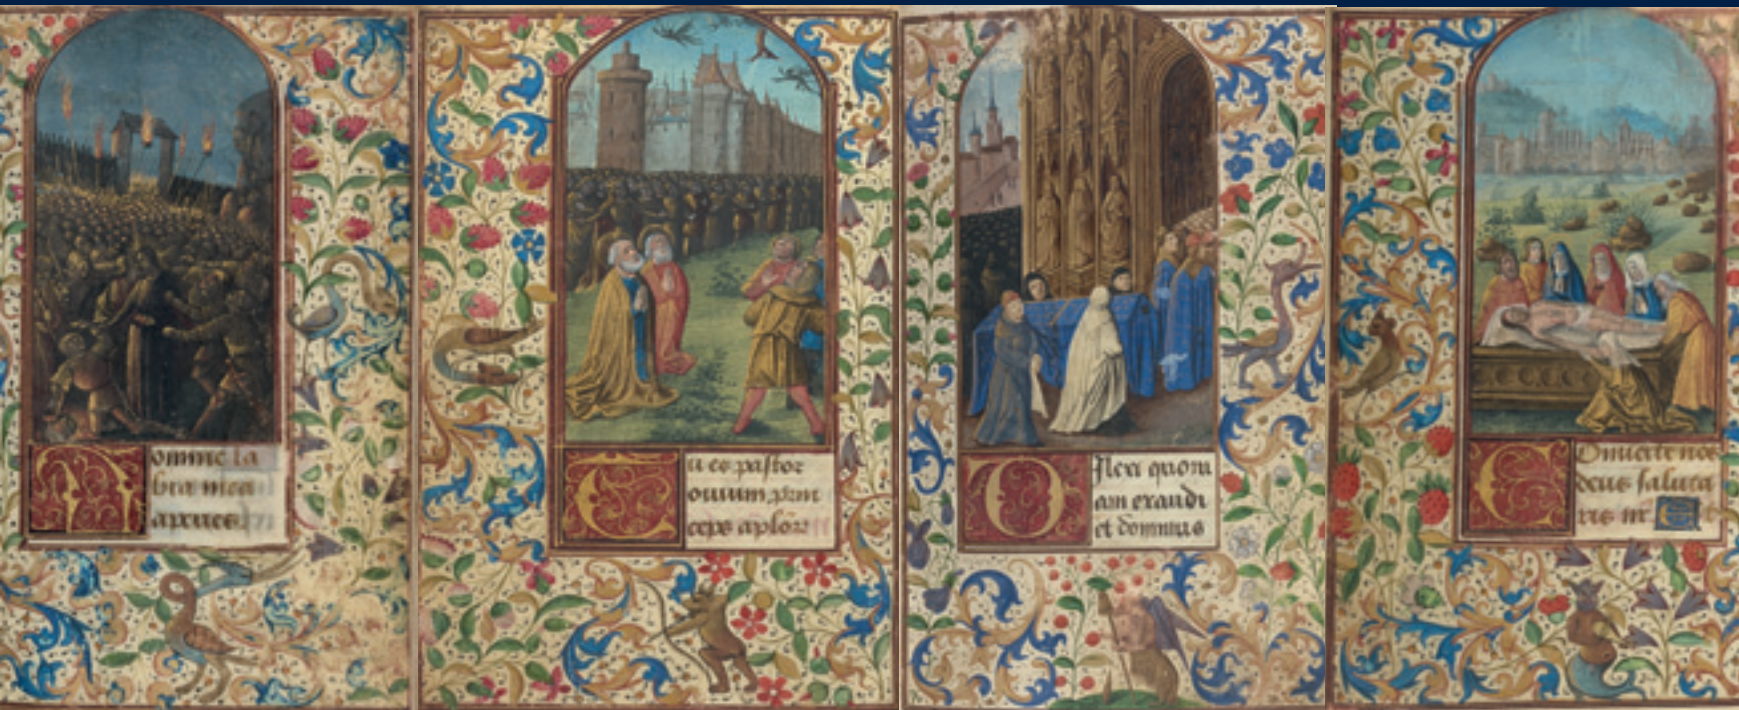 Domine la
bia mea
aperies
Tu es pastor
ouium prin
ceps aplor
Dilexi quoni
am exaudi
et dominus
Conuerte nos
deus saluta
ris nr. Et